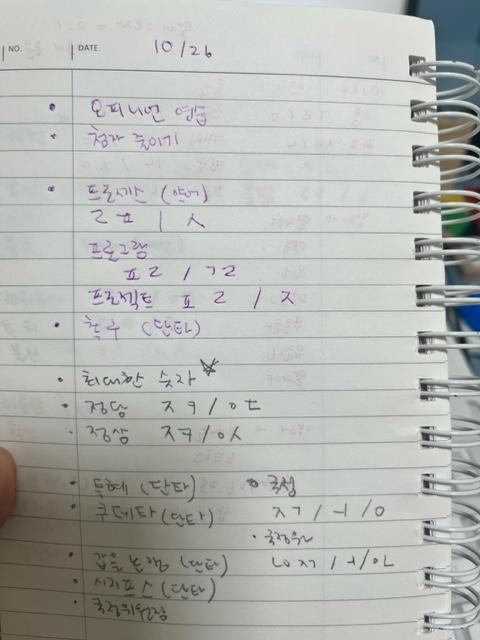 NO. DATE. 10/26
• 오피니언 연습
• 첨자 줄이기
• 프로시슨 (약어)
ㄹㅍ / ㅅ
프로그램
ㅍㄹ / ㄱㄹ
프로젝트 ㅍㄹ / ㅈ
• 촉구 (단타)
• 최대한 숫자
• 정당 ㅈㅋ/ㅇㄷ
• 정상 ㅈㅋ/ㅇㅅ
• 특혜 (단타)
• 국정
• 쿠데타 (단타)
ㅈㄱ/ㅓ/ㅇ
• 국정원
• 갑을논쟁 (단타)
• 시지프스 (단타)
• 국정위원장